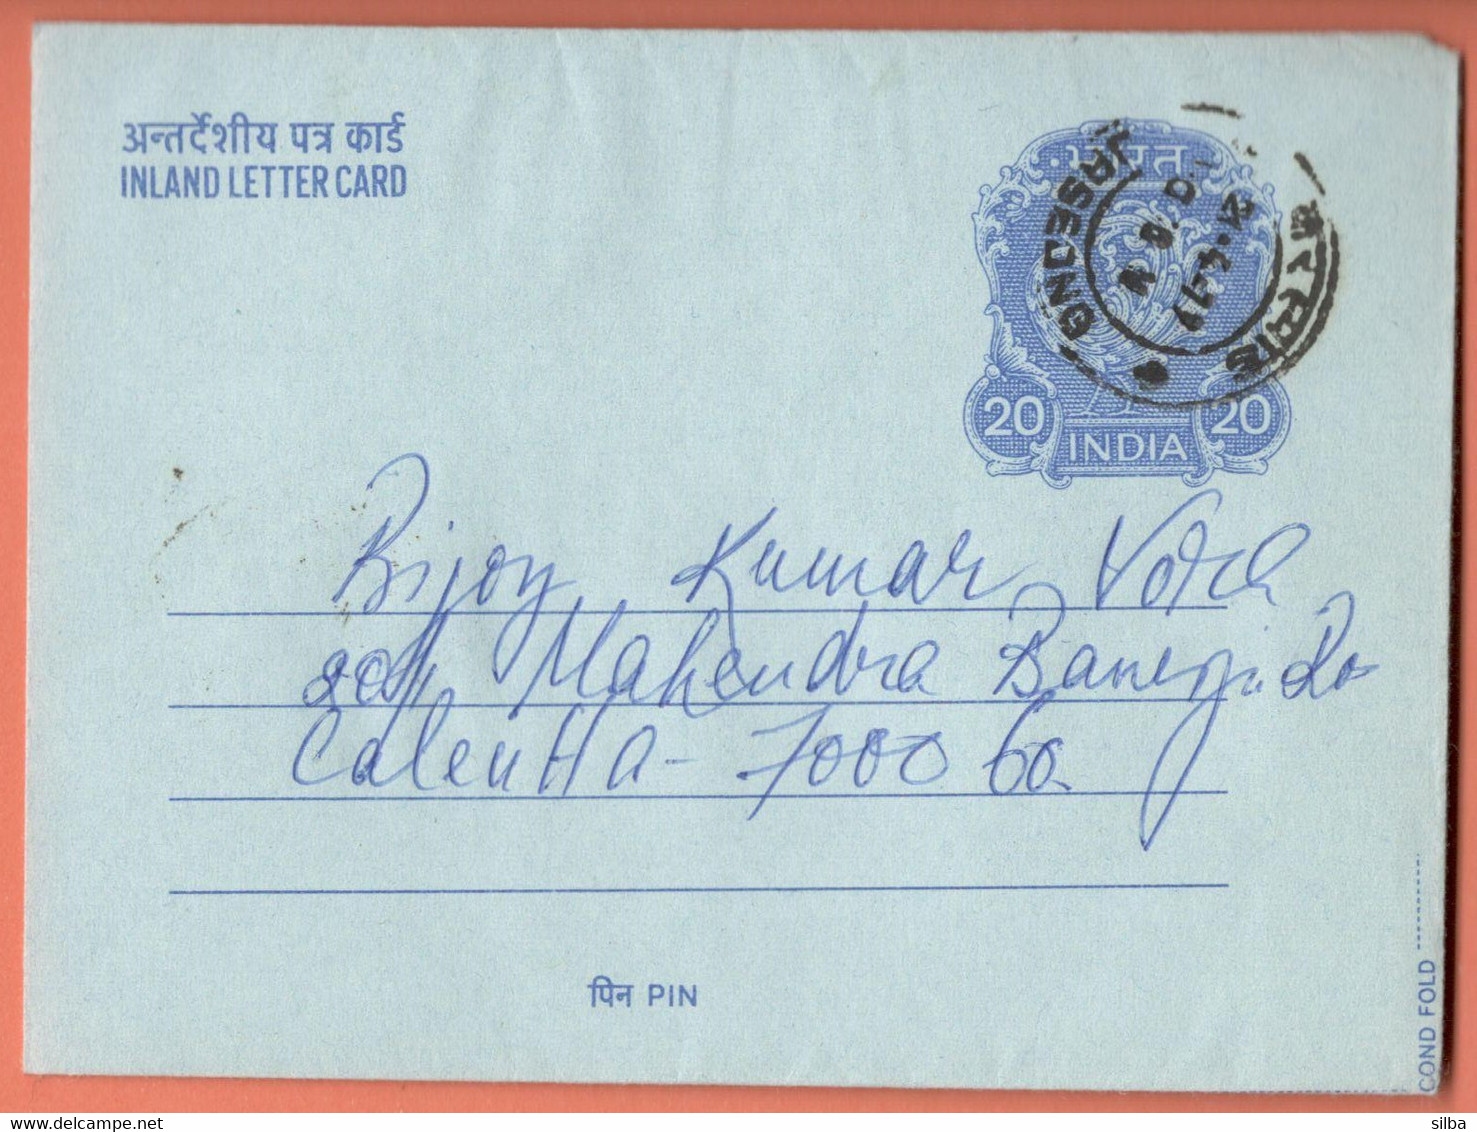 अन्तर्देशीय पत्र कार्ड
INLAND LETTER CARD
भारत
JASEDNG
20 INDIA 20
Bijoy Kumar Vora
Mahendra Banerji Ro
Calcutta - 7000 60
पिन PIN
COND FOLD
silba